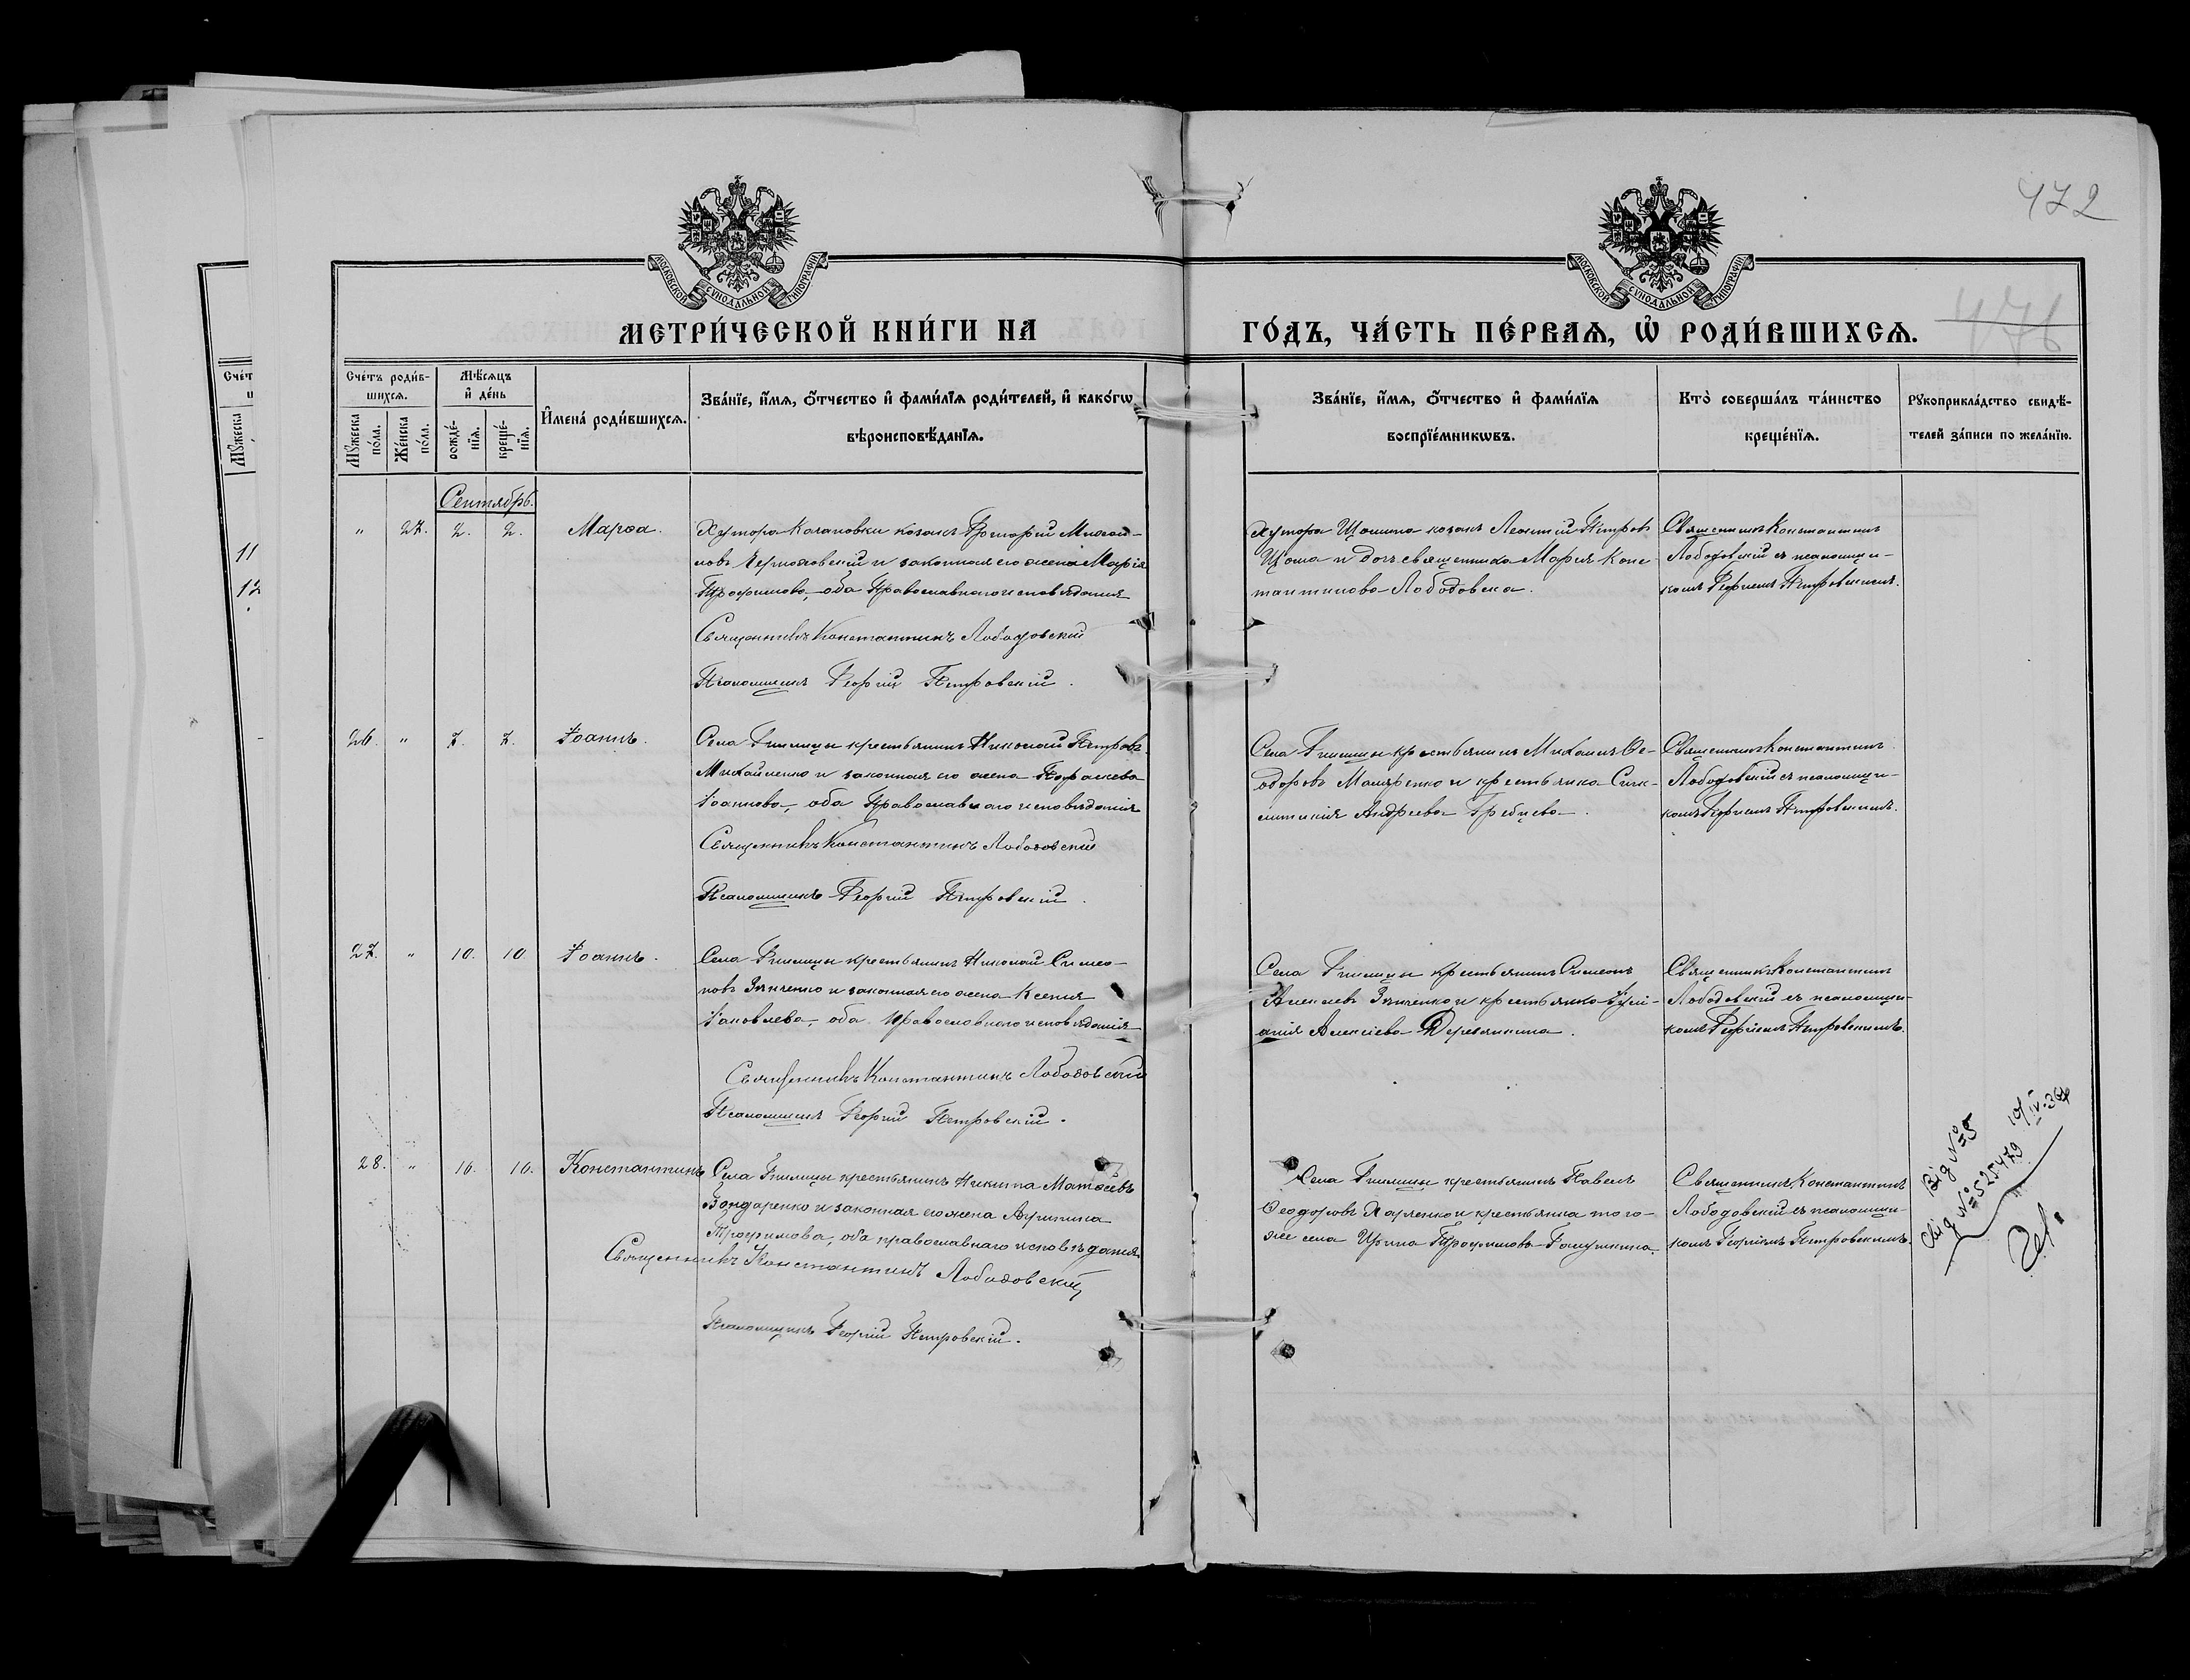 472
476
МОСКОВСКОЙ СУНОДАЛЬНОЙ ТИПОГРАФІИ
МОСКОВСКОЙ СУНОДАЛЬНОЙ ТИПОГРАФІИ
МЕТРИ́ЧЕСКОЙ КНИ́ГИ НА ГО́ДЪ, ЧА́СТЬ ПЕ́РВАѦ, Ѿ РОДИ́ВШИХСѦ.
Сче́тъ роди́в-
шихсѧ.
Мꙋ́жеска по́ла.
Же́нска по́ла.
Мѣ́сѧцъ
и де́нь
рожде́-нїѧ.
креще́-нїѧ.
Имена̀ роди́вшихсѧ.
Зва́нїе, и́мѧ, о́тчество и фами́лїѧ роди́телей, и како́гѡ
вѣроисповѣ́данїѧ.
Зва́нїе, и́мѧ, о́тчество и фами́лїѧ
воспрїе́мникѡвъ.
Кто̀ соверша́лъ та́инство
креще́нїѧ.
Рꙋкоприкла́дство свидѣ́-
телей за́писи по жела́нїю.
Сче́т
11
12
Сентябрь.
" 27. 2. 2. Марѳа.
Хутора козакъ Григорій Михаи-
ловъ и законная его жена Марія
Трофимова, оба Православнаго исповѣданія
Священникъ Константинъ Лободовскій
Псаломщикъ Георгій Петровскій.
Хутора козакъ Леонтій Петровъ
и дочь священника Марія Конс-
тантинова Лободовска.
Священникъ Константинъ
Лободовскій съ псаломщи-
комъ Георгіемъ Петровскимъ.
26. " 7. 7. Іоаннъ.
Села Гнилицы крестьянинъ Николай Петровъ
Михайленко и законная его жена Параскева
Іоаннова, оба Православнаго исповѣданія
Священникъ Константинъ Лободовскій
Псаломщикъ Георгій Петровскій.
Села Гнилицы крестьянинъ Михаилъ Ѳе-
одоровъ и крестьянка Синк-
литикія Андреева Гребцева.
Священникъ Константинъ
Лободовскій съ псаломщи-
комъ Георгіемъ Петровскимъ.
27. " 10. 10 Іоаннъ.
Села Гнилицы крестьянинъ Николай Симео-
новъ Зинченко и законная его жена Ксенія
Іаковлева, оба православнаго исповѣданія
Священникъ Константинъ Лободовскій
Псаломщикъ Георгій Петровскій.
Села Гнилицы крестьянинъ Симеонъ
Алексіевъ Зинченко и крестьянка Іулі-
анія Алексіева Деревянкина.
Священникъ Константинъ
Лободовскій съ псаломщи-
комъ Георгіемъ Петровскимъ.
28. " 16. 16. Константинъ
Села Гнилицы крестьянинъ Никита Матѳеевъ
Бондаренко и законная его жена Агрипина
Трофимова, оба православнаго исповѣданія
Священникъ Константинъ Лободовскій
Псаломщикъ Георгій Петровскій.
Села Гнилицы крестьянинъ Павелъ
Ѳеодоровъ Харченко и крестьянка того-
же села Ирина Трофимова
Священникъ Константинъ
Лободовскій съ псаломщи-
комъ Георгіемъ Петровскимъ.
Від №5
Свід №525479